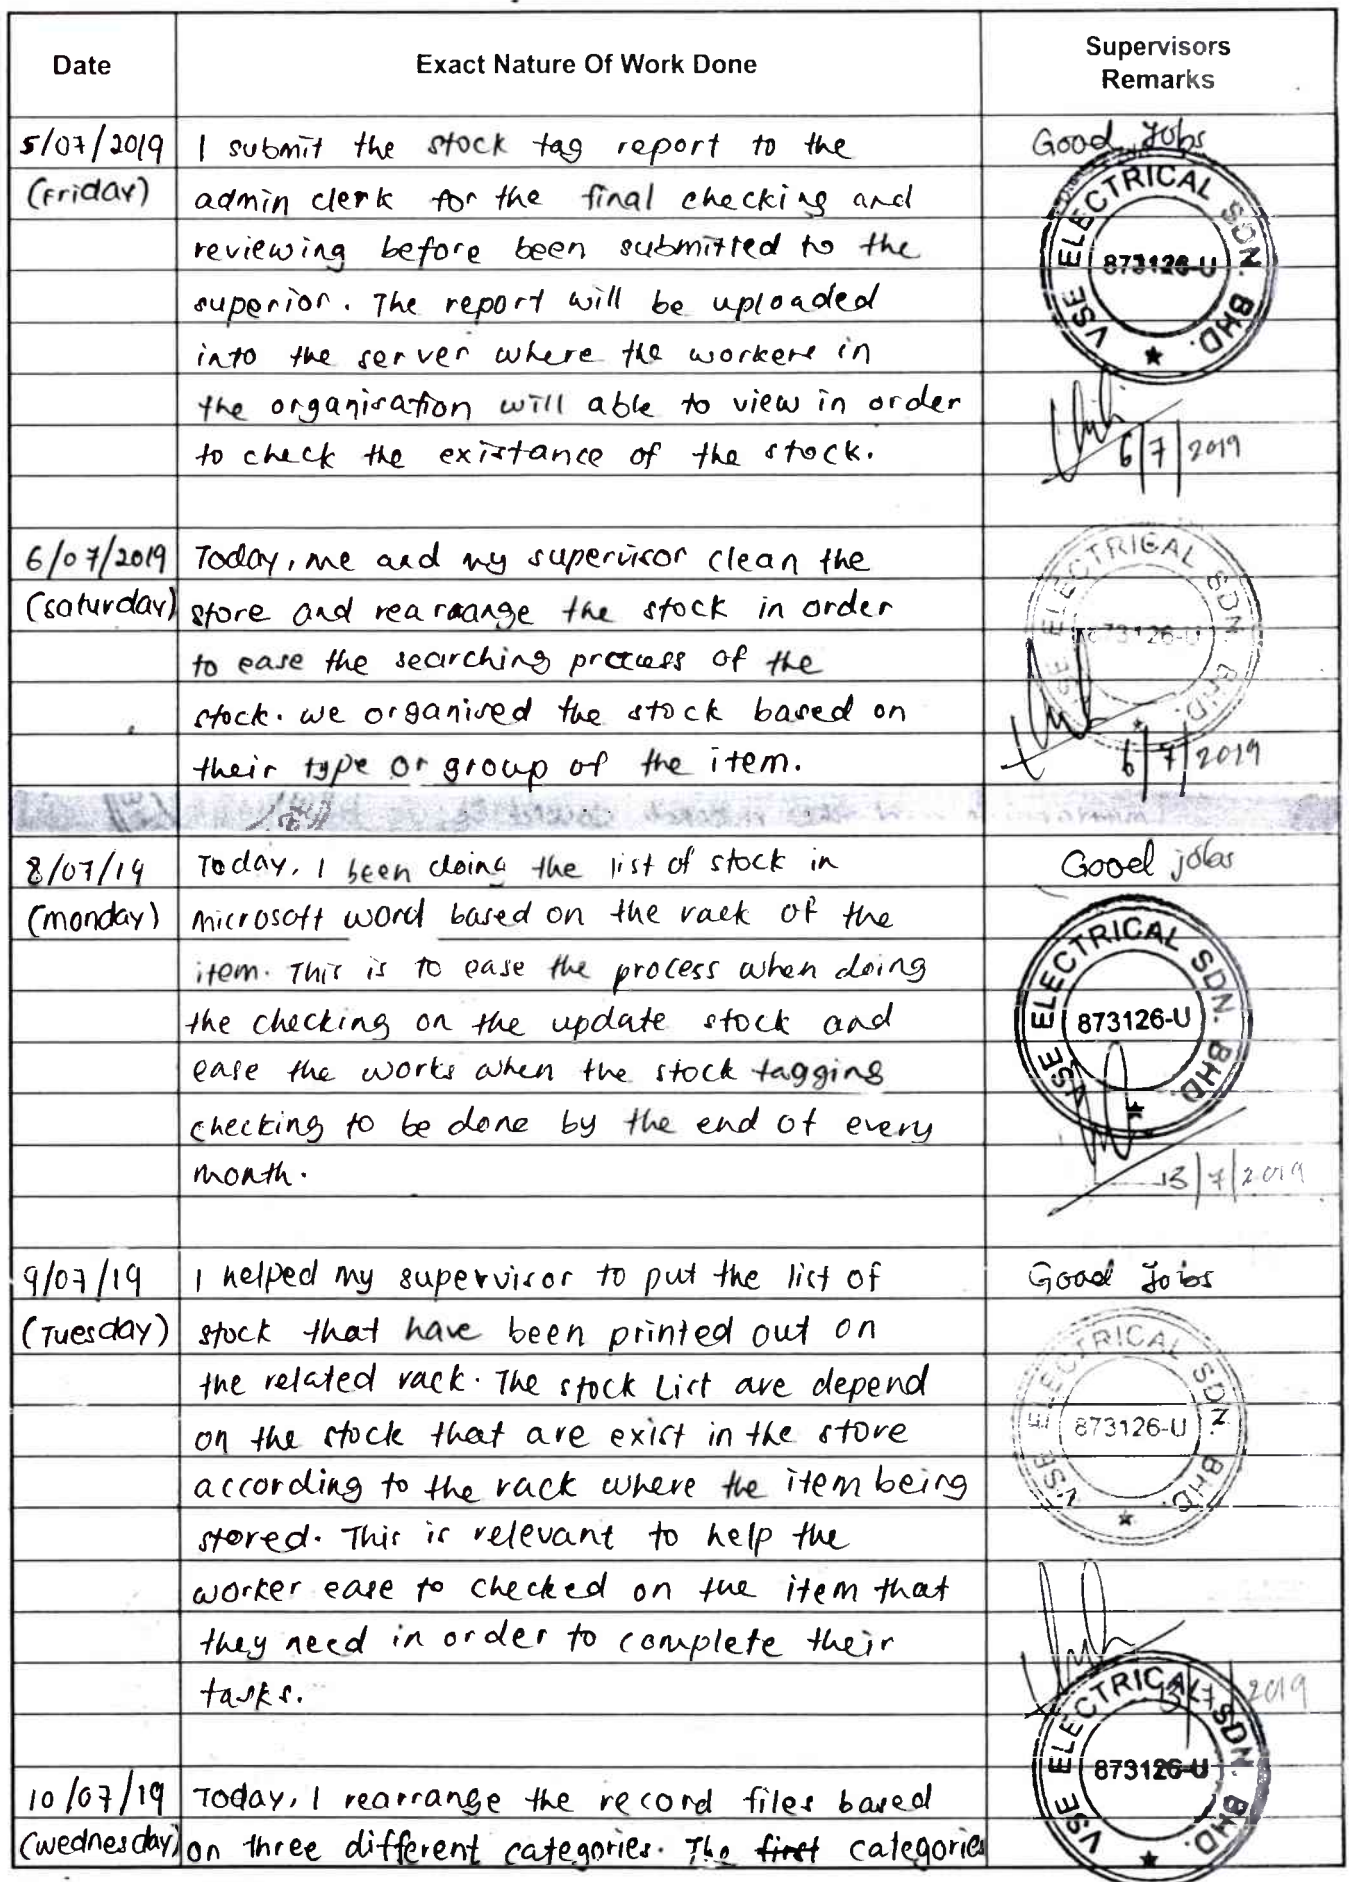 Date Exact Nature Of Work Done Supervisors Remarks
5/07/2019 I submit the stock tag report to the Good Jobs
(Friday) admin clerk for the final checking and
reviewing before been submitted to the
superior. The report will be uploaded
into the server where the workers in
the organisation will able to view in order
to check the existance of the stock.
VSE ELECTRICAL SDN. BHD.
873126-U
6/7/2019
6/07/2019 Today, me and my supervisor clean the
(Saturday) store and rearrange the stock in order
to ease the searching process of the
stock. we organised the stock based on
their type or group of the item.
VSE ELECTRICAL SDN. BHD.
873126-U
6/7/2019
8/07/19 Today, I been doing the list of stock in Good jobs
(monday) microsoft word based on the rack of the
item. This is to ease the process when doing
the checking on the update stock and
ease the works when the stock tagging
checking to be done by the end of every
month.
VSE ELECTRICAL SDN. BHD
873126-U
13/7/2019
9/07/19 I helped my supervisor to put the list of Good Jobs
(Tuesday) stock that have been printed out on
the related rack. The stock List are depend
on the stock that are exist in the store
according to the rack where the item being
stored. This is relevant to help the
worker ease to checked on the item that
they need in order to complete their
tasks.
VSE ELECTRICAL SDN. BHD.
873126-U
13/7/2019
10/07/19 Today, I rearrange the record files based
(wednesday) on three different categories. The first categories
VSE ELECTRICAL SDN. BHD.
873126-U